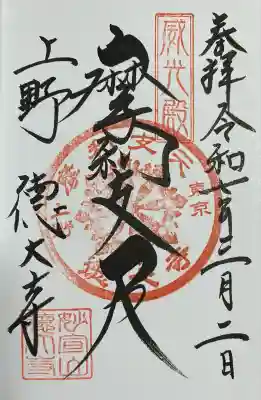 奉拝 令和七年二月二日
威光殿
摩利支天
東京
上野
徳大寺